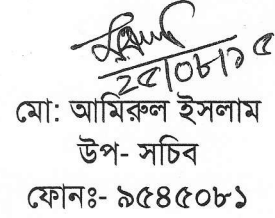 ২৫/০৮/১৫
মো: আমিরুল ইসলাম
উপ- সচিব
ফোনঃ- ৯৫৪৫০৮১